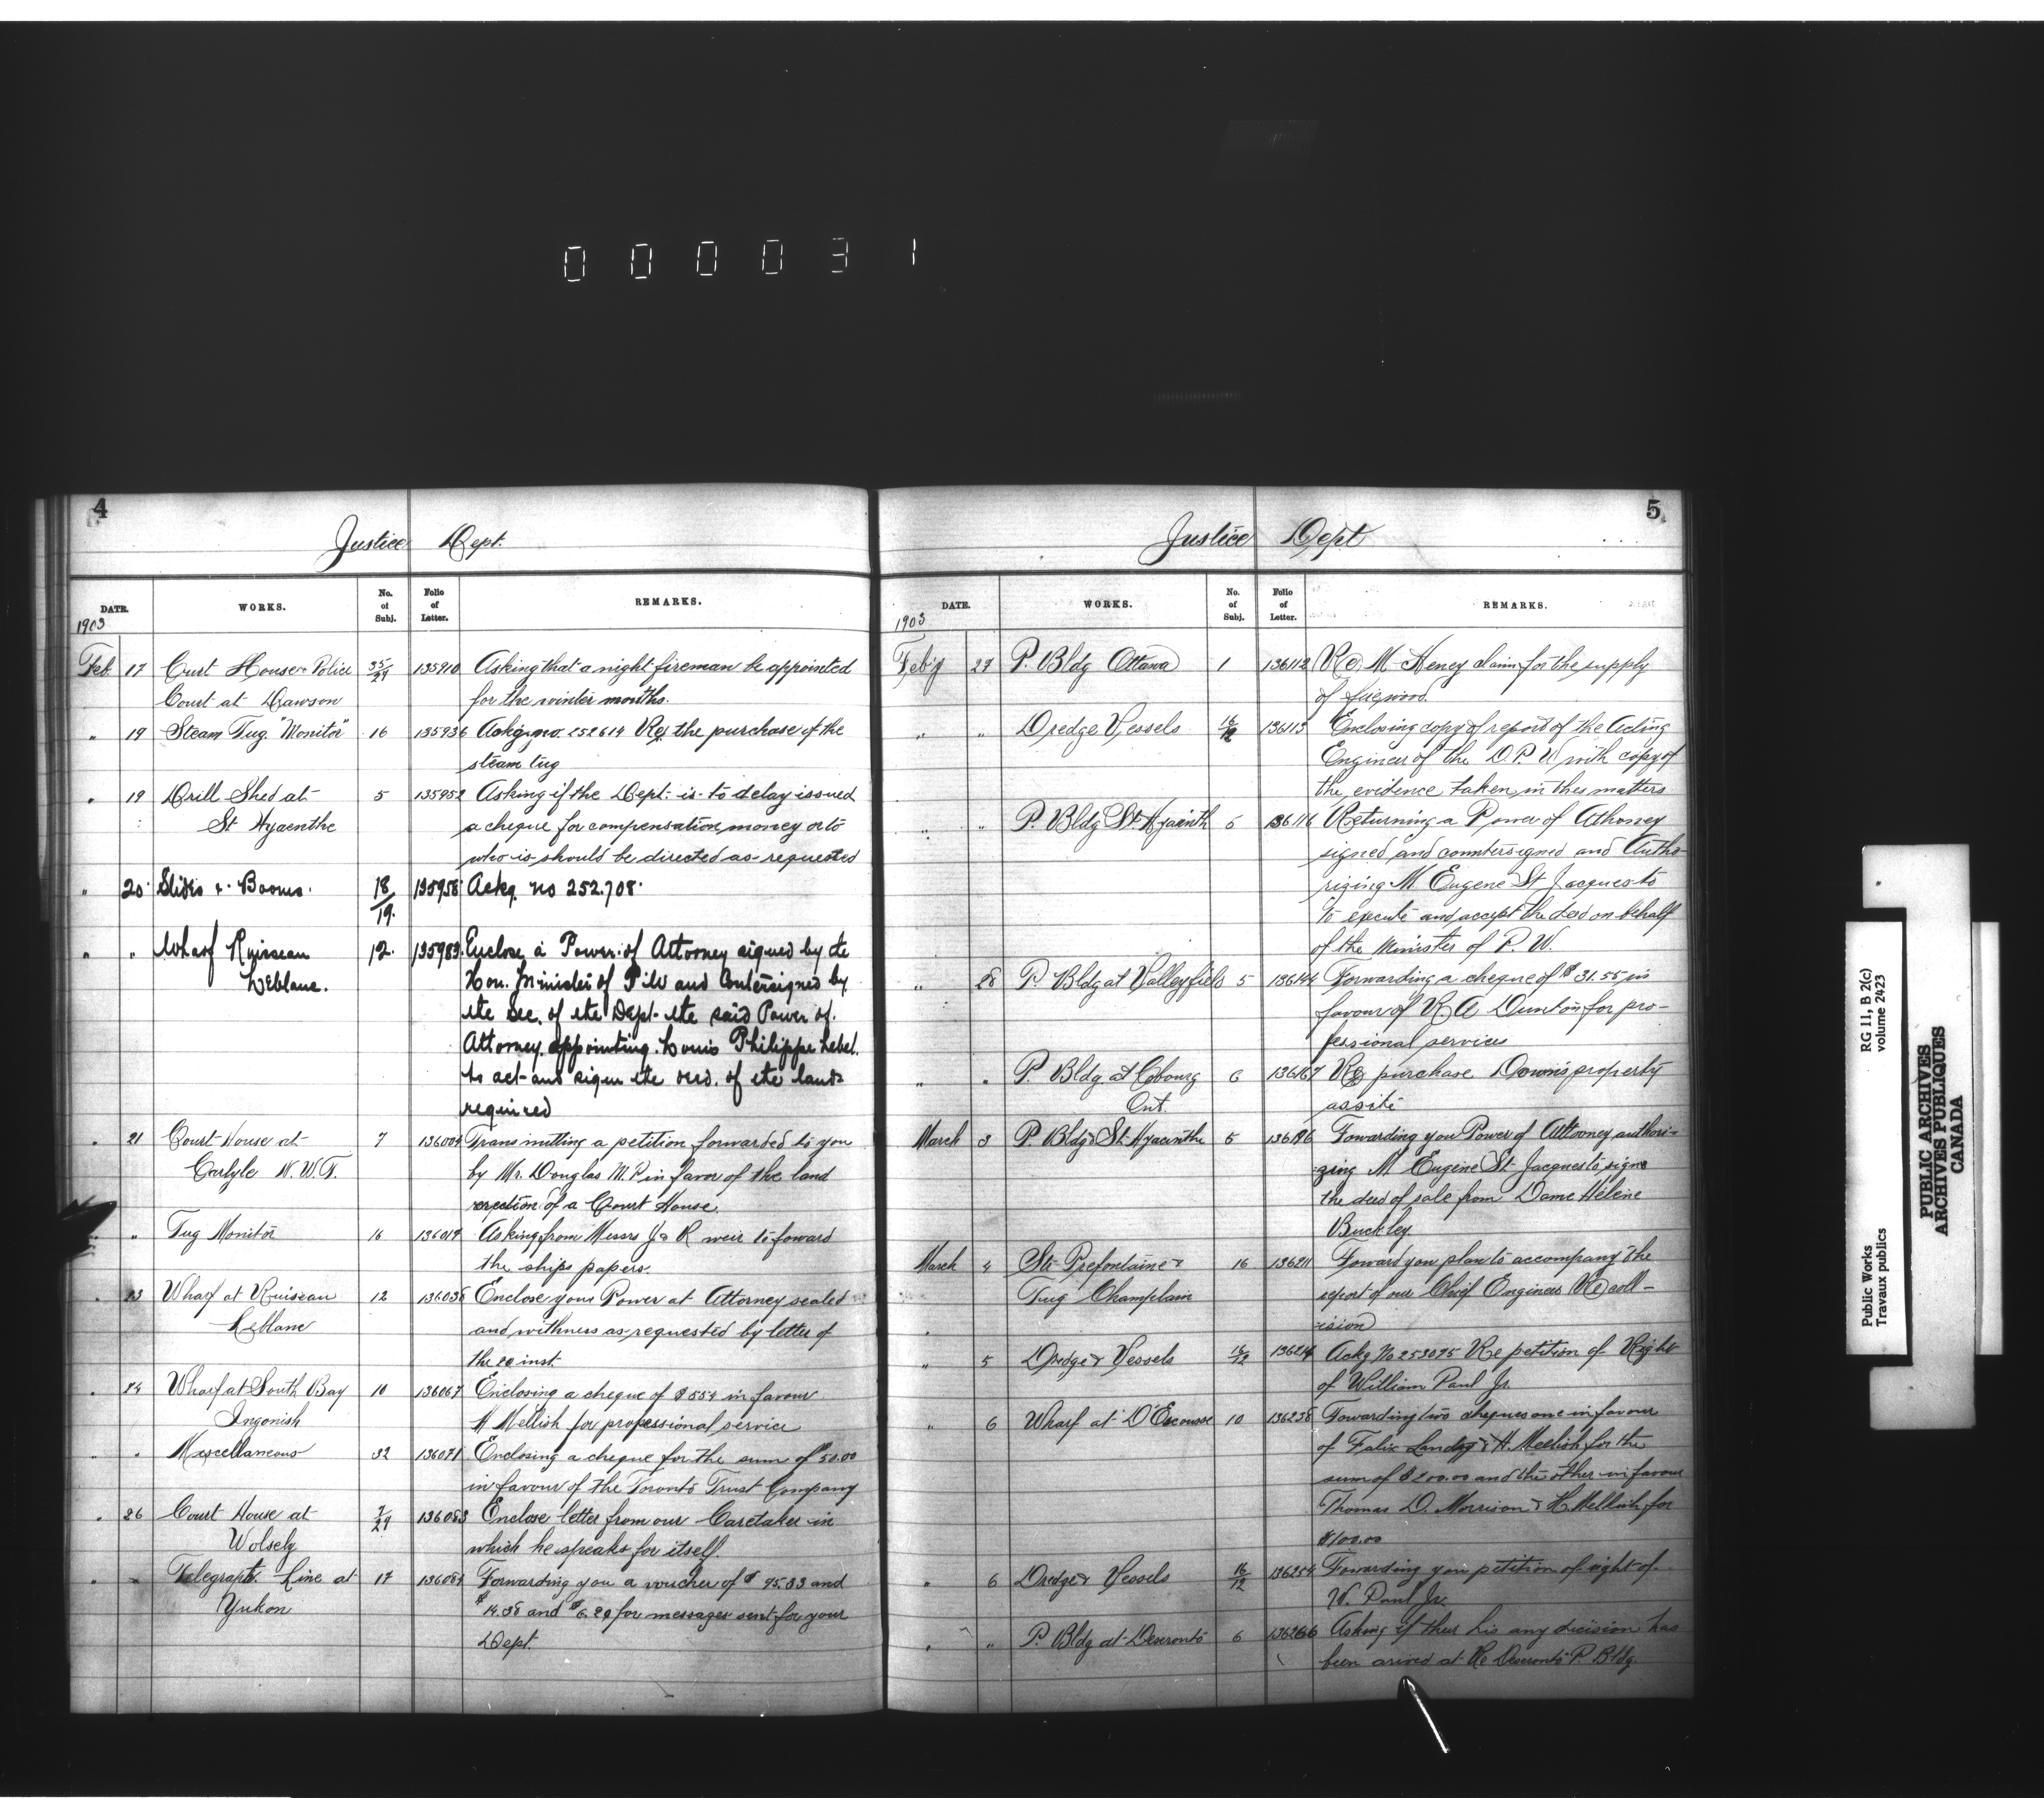 000031
4
Justice Dept.
DATE. WORKS. No. of Subj. Folio of Letter. REMARKS.
1903
Feb 17 Curt House & Police 35/29 135910 Asking that a night fireman be appointed
Court at Dawson for the winter months.
" 19 Steam Tug "Monitor" 16 135936 Ackg no. 252614 Re the purchase of the
steam tug
" 19 Drill Shed at 5 135952 Asking if the Dept. is to delay issued
St Hyacnthe a cheque for compensation money or to
who is should be directed as requested
" 20 Slides & Booms. 18/19. 135958 Ackg. no 252.708.
" " Wharf Ruisseau 12. 135983. Enclose a Power of Attorney signed by the
Leblanc. Hon. Minister of P.W and Contersigned by
the Sec. of the Dept. the said Power of
Attorney appointing Louis Philippe Lebel.
to act and sign the deed. of the land
required
" 21 Court House at 7 136004 Transmitting a petition forwarded to you
Carlyle N.W.T. by Mr. Douglas M.P in favor of the land
erection of a Court House.
" Tug Monitor 16 136019 Asking from Messrs J & R weir to foward
the ships papers.
" 23 Wharf at Ruiseau 12 136038 Enclose your Power at Attorney sealed
Leblanc and withness as requested by letter of
the 20 inst.
" 24 Wharf at South Bay 10 136067 Enclosing a cheque of $554 in favour
Ingonish H Mellish for professional service
" " Miscellaneous 32 136071 Enclosing a cheque for the sum of $50.00
in favour of the Toronto Trust Company
" 26 Court House at 7/29 136083 Enclose letter from our Caretaker in
Wolsely which he speaks for itself.
" " Telegraph. Line at 17 136089 Forwarding you a voucher of $95.33 and
Yukon $14.38 and $6.29 for messages sent for your
Dept.
5
Justice Dept
DATE. WORKS. No. of Subj. Folio of Letter. REMARKS.
1903
Feb'y 27 P. Bldg Ottawa 1 136112 Re M Heney claim for the supply
of fuegwood.
" " Dredge Vessels 16/12 136113 Enclosing copy of report of the Acting
Engineer of the D.P.W with copy of
the evidence taken in thes matters
" " P. Bldg St Hyacinth 5 136116 Returning a Power of Athorney
signed and countersigned and Autho-
rizing M Eugene St Jacques to
to execute and accept the deed on behalf
of the Minister of P.W.
" 28 P. Bldg at Valleyfield 5 136144 Forwarding a cheque of $31.55 in
favour of R A Dunton for pro-
fessional services
" " P. Bldg at Cobourg 6 136167 Re purchase Downs property
Ont. as site
March 3 P. Bldg St Hyacinthe 5 136196 Fowarding you Power of Attorney authori-
zing M Eugene St Jacques to signe
the deed of sale from Dame Hélène
Buckley.
March 4 Str Prefontaine & 16 136211 Foward you plan to accompany the
Tug Champlain report of our Chief Engineer Re coll-
ision
" 5 Dredge & Vessels 16/12 136214 Ackg No 253095 Re petition of Right
of William Paul Jr
" 6 Wharf at D'Escousse 10 136238 Fowarding two cheques one in favour
of Felix Landry & H. Mellish for the
sum of $200.00 and the other in favour
Thomas D. Morrison & H Mellish for
$100.00
" 6 Dredge & Vessels 16/12 136254 Fowarding you petition of right of
W. Paul Jr.
" " P. Bldg at Deseronto 6 136266 Asking if ther his any decision has
been arived at Re Deseronto P. Bldg.
Public Works
Travaux publics
RG 11, B 2(c)
volume 2423
PUBLIC ARCHIVES
ARCHIVES PUBLIQUES
CANADA